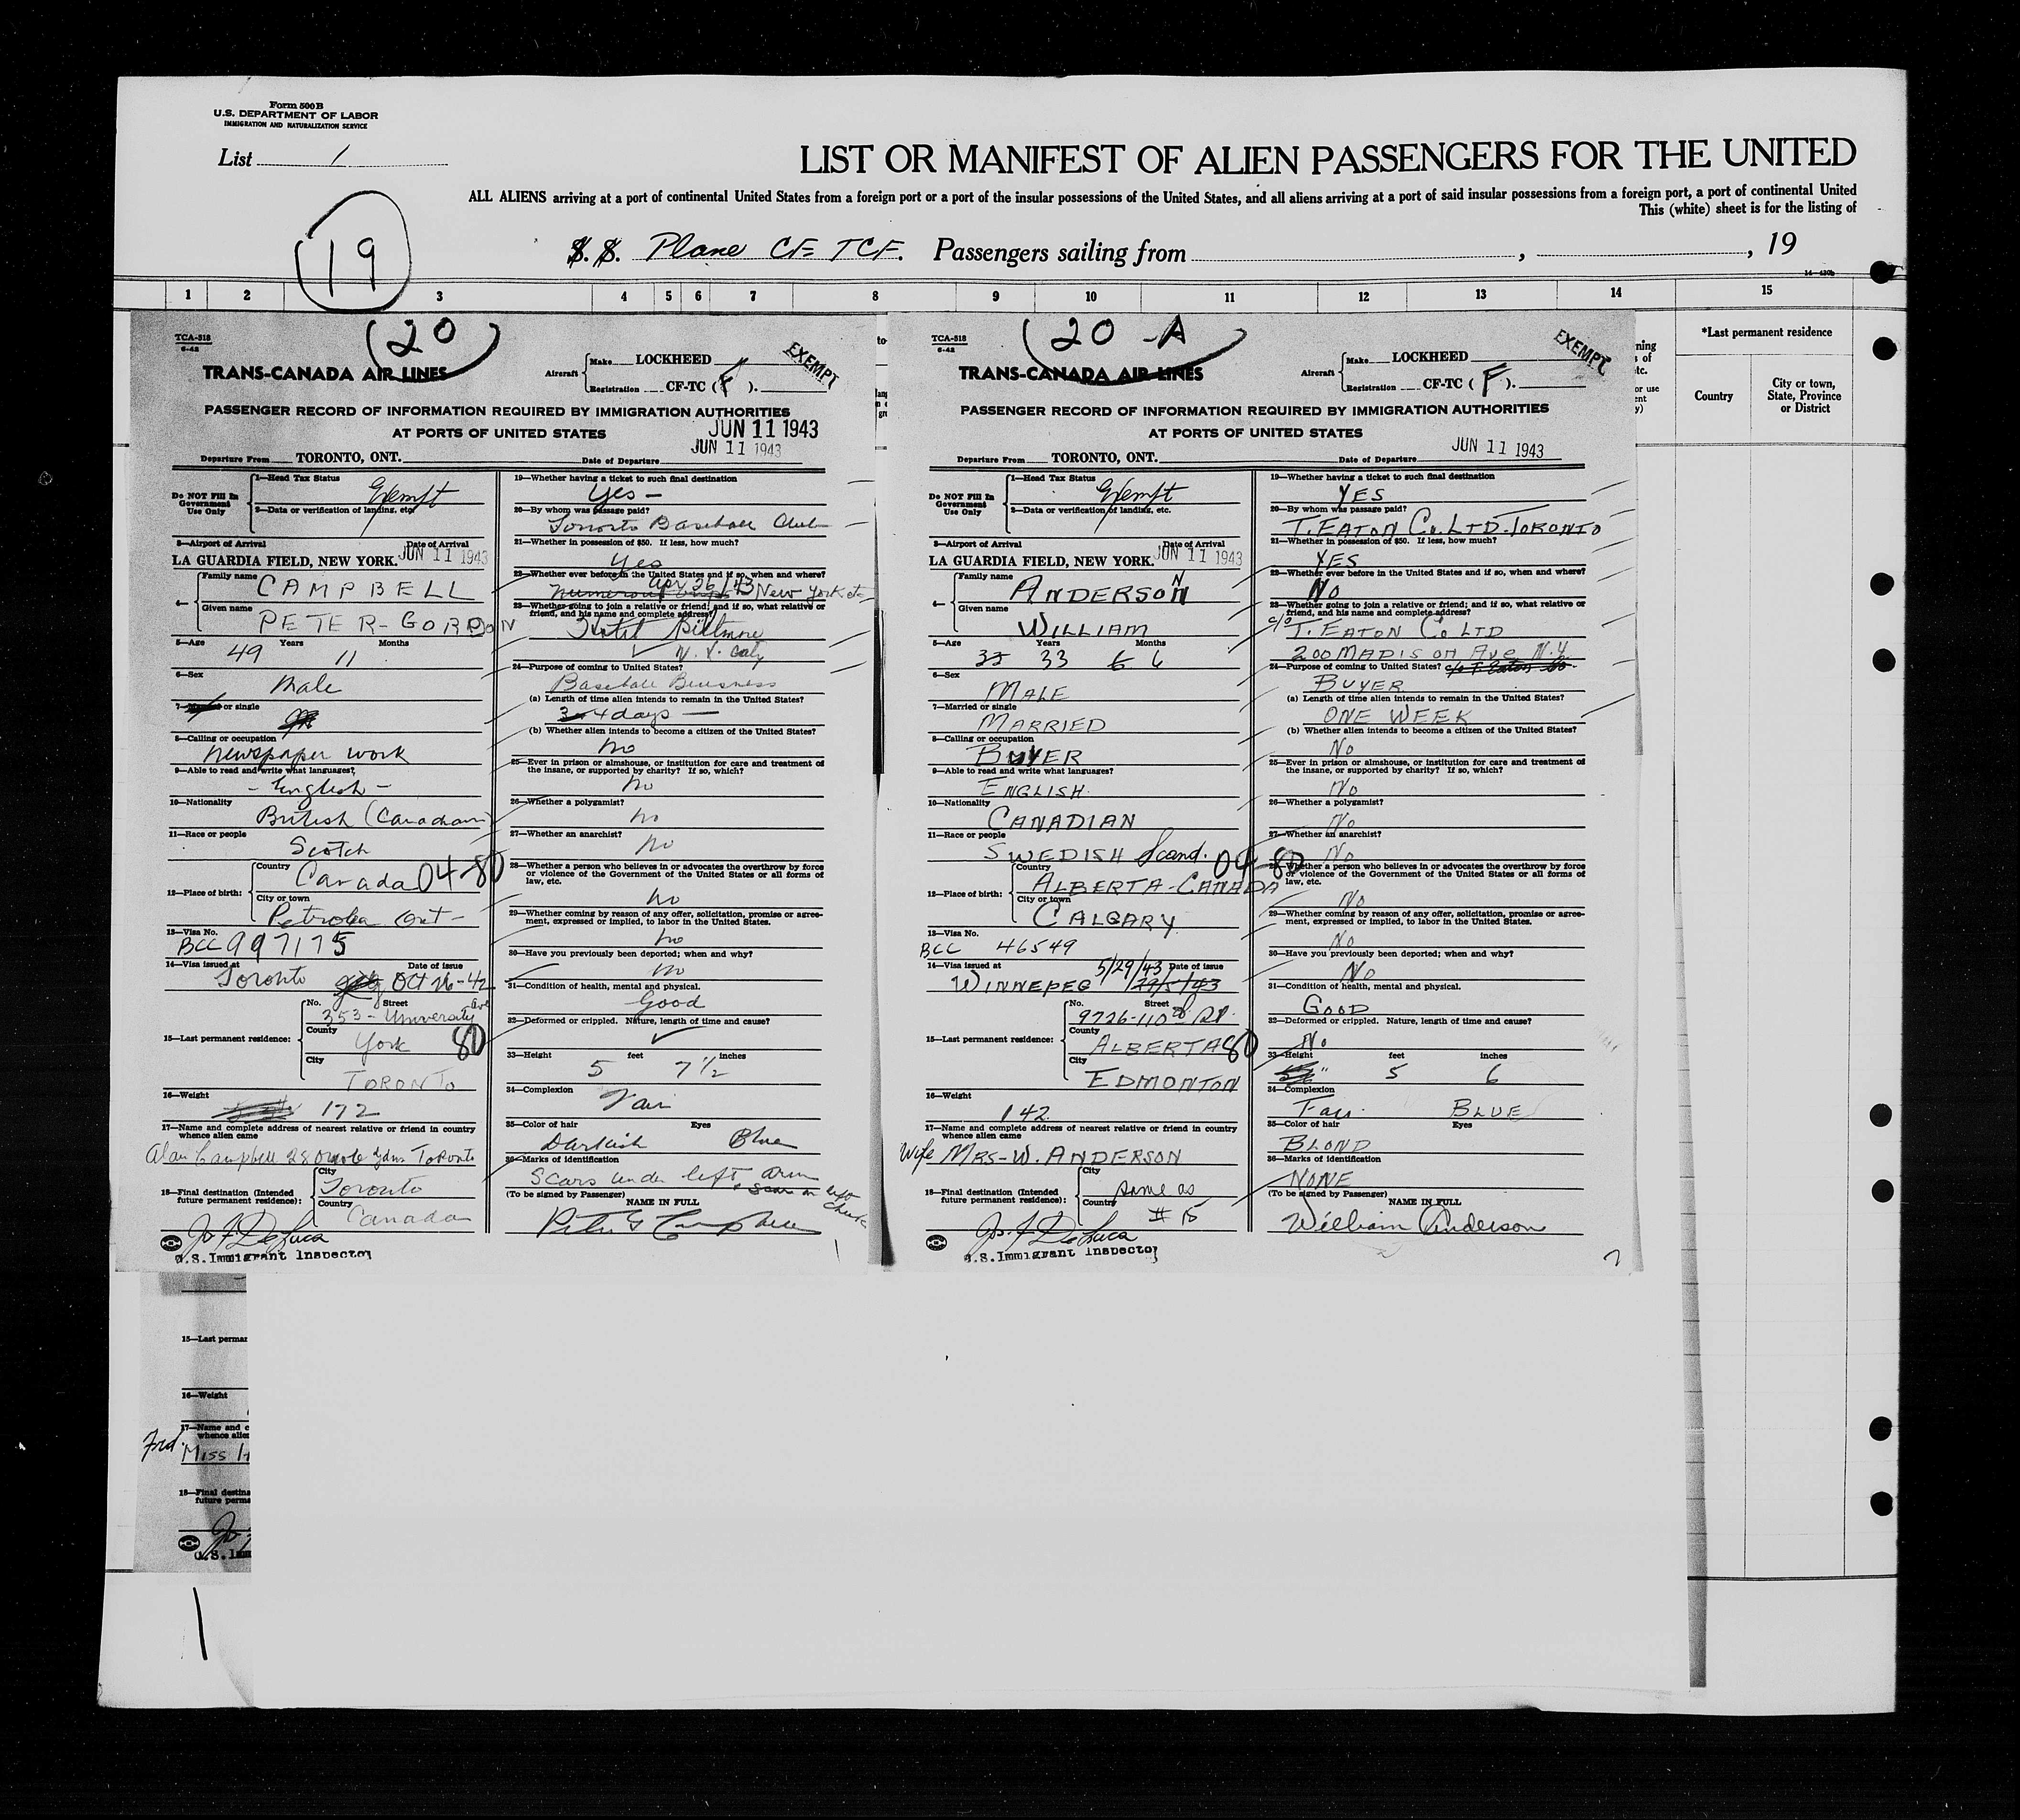 Form 500B
U.S. DEPARTMENT OF LABOR
IMMIGRATION AND NATURALIZATION SERVICE
List 1
LIST OR MANIFEST OF ALIEN PASSENGERS FOR THE UNITED
ALL ALIENS arriving at a port of continental United States from a foreign port or a port of the insular possessions of the United States, and all aliens arriving at a port of said insular possessions from a foreign port, a port of continental United
This (white) sheet is for the listing of
19
S.S. Plane CF-TCF. Passengers sailing from , , 19
1 2 3 4 5 6 7 8 9 10 11 12 13 14 15
*Last permanent residence
Country
City or town, State, Province or District
TCA-518
6-42
20
TRANS-CANADA AIR LINES
Aircraft
Make LOCKHEED
Registration CF-TC (F).
EXEMPT
PASSENGER RECORD OF INFORMATION REQUIRED BY IMMIGRATION AUTHORITIES
AT PORTS OF UNITED STATES
JUN 11 1943
JUN 11 1943
Departure From TORONTO, ONT.
Date of Departure
Do NOT Fill In Government Use Only
1—Head Tax Status
Exempt
2—Data or verification of landing, etc.
3—Airport of Arrival
Date of Arrival
LA GUARDIA FIELD, NEW YORK. JUN 11 1943
4—
Family name
CAMPBELL
Given name
PETER-GORDON
5—Age Years Months
49 11
6—Sex
Male
7—Married or single
8—Calling or occupation
Newspaper work
9—Able to read and write what languages?
- English -
10—Nationality
British (Canadian)
11—Race or people
Scotch
12—Place of birth:
Country
Canada 04-80
City or town
Petrolia Ont-
13—Visa No.
BCC 997175
14—Visa issued at Date of issue
Toronto Oct 26-42
15—Last permanent residence:
No. Street
353 - University Ave
County
York 80
City
TORONTO
16—Weight
172
17—Name and complete address of nearest relative or friend in country whence alien came
Alan Campbell 28 Gdns Toronto
18—Final destination (Intended future permanent residence):
City
Toronto
Country
Canada
Jos J DeLuca
U.S. Immigrant Inspector
19—Whether having a ticket to such final destination
Yes -
20—By whom was passage paid?
Toronto Baseball Club
21—Whether in possession of $50. If less, how much?
Yes
22—Whether ever before in the United States and if so, when and where?
Apr 26/43
Numerous trips New York etc
23—Whether going to join a relative or friend; and if so, what relative or friend, and his name and complete address?
Hotel Biltmore
N.Y. City
24—Purpose of coming to United States?
Baseball Business
(a) Length of time alien intends to remain in the United States?
3 - 4 days -
(b) Whether alien intends to become a citizen of the United States?
No
25—Ever in prison or almshouse, or institution for care and treatment of the insane, or supported by charity? If so, which?
No
26—Whether a polygamist?
No
27—Whether an anarchist?
No
28—Whether a person who believes in or advocates the overthrow by force or violence of the Government of the United States or all forms of law, etc.
No
29—Whether coming by reason of any offer, solicitation, promise or agreement, expressed or implied, to labor in the United States.
No
30—Have you previously been deported; when and why?
No
31—Condition of health, mental and physical.
Good
32—Deformed or crippled. Nature, length of time and cause?
33—Height feet inches
5 7 1/2
34—Complexion
Fair
35—Color of hair Eyes
Darkish Blue
36—Marks of identification
Scars under left arm
+ Scar on left cheek
(To be signed by Passenger) NAME IN FULL
Peter G Campbell
1
TCA-518
6-42
20-A
TRANS-CANADA AIR LINES
Aircraft
Make LOCKHEED
Registration CF-TC (F).
EXEMPT
PASSENGER RECORD OF INFORMATION REQUIRED BY IMMIGRATION AUTHORITIES
AT PORTS OF UNITED STATES
JUN 11 1943
Departure From TORONTO, ONT.
Date of Departure
Do NOT Fill In Government Use Only
1—Head Tax Status
Exempt
2—Data or verification of landing, etc.
3—Airport of Arrival
Date of Arrival
LA GUARDIA FIELD, NEW YORK. JUN 11 1943
4—
Family name
ANDERSON
Given name
WILLIAM
5—Age Years Months
33 33 6 6
6—Sex
MALE
7—Married or single
MARRIED
8—Calling or occupation
BUYER
9—Able to read and write what languages?
ENGLISH.
10—Nationality
CANADIAN
11—Race or people
SWEDISH Scand.
12—Place of birth:
Country
04-80
ALBERTA-CANADA
City or town
CALGARY
13—Visa No.
BCC 46549
14—Visa issued at Date of issue
5/29/43
WINNEPEG 29/5/43
15—Last permanent residence:
No. Street
9726-110th St.
County
ALBERTA 80
City
EDMONTON
16—Weight
142
17—Name and complete address of nearest relative or friend in country whence alien came
Wife MRS-W. ANDERSON
18—Final destination (Intended future permanent residence):
City
same as
Country
# 15
Jos. J DeLuca
U.S. Immigrant Inspector
19—Whether having a ticket to such final destination
YES
20—By whom was passage paid?
T. EATON CO. LTD. TORONTO
21—Whether in possession of $50. If less, how much?
YES
22—Whether ever before in the United States and if so, when and where?
NO
23—Whether going to join a relative or friend; and if so, what relative or friend, and his name and complete address?
c/o T. EATON CO LTD
200 MADISON AVE N.Y.
24—Purpose of coming to United States? c/o T. Eaton Co.
BUYER
(a) Length of time alien intends to remain in the United States?
ONE WEEK
(b) Whether alien intends to become a citizen of the United States?
No
25—Ever in prison or almshouse, or institution for care and treatment of the insane, or supported by charity? If so, which?
No
26—Whether a polygamist?
No
27—Whether an anarchist?
No
28—Whether a person who believes in or advocates the overthrow by force or violence of the Government of the United States or all forms of law, etc.
No
29—Whether coming by reason of any offer, solicitation, promise or agreement, expressed or implied, to labor in the United States.
No
30—Have you previously been deported; when and why?
No
31—Condition of health, mental and physical.
GOOD
32—Deformed or crippled. Nature, length of time and cause?
No
33—Height feet inches
5 6
34—Complexion
Fair. BLUE
35—Color of hair Eyes
BLOND
36—Marks of identification
NONE
(To be signed by Passenger) NAME IN FULL
William Anderson
2
15—Last perma
16—Weight
17—Name and c
whence alie
Frd. MISS H
18—Final destina
future perma
U.S. Imm